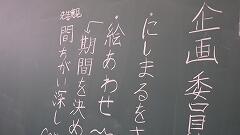 企画委員
・にしまるをさ
・絵あわせ
↓期間を決め
間ちがい深し